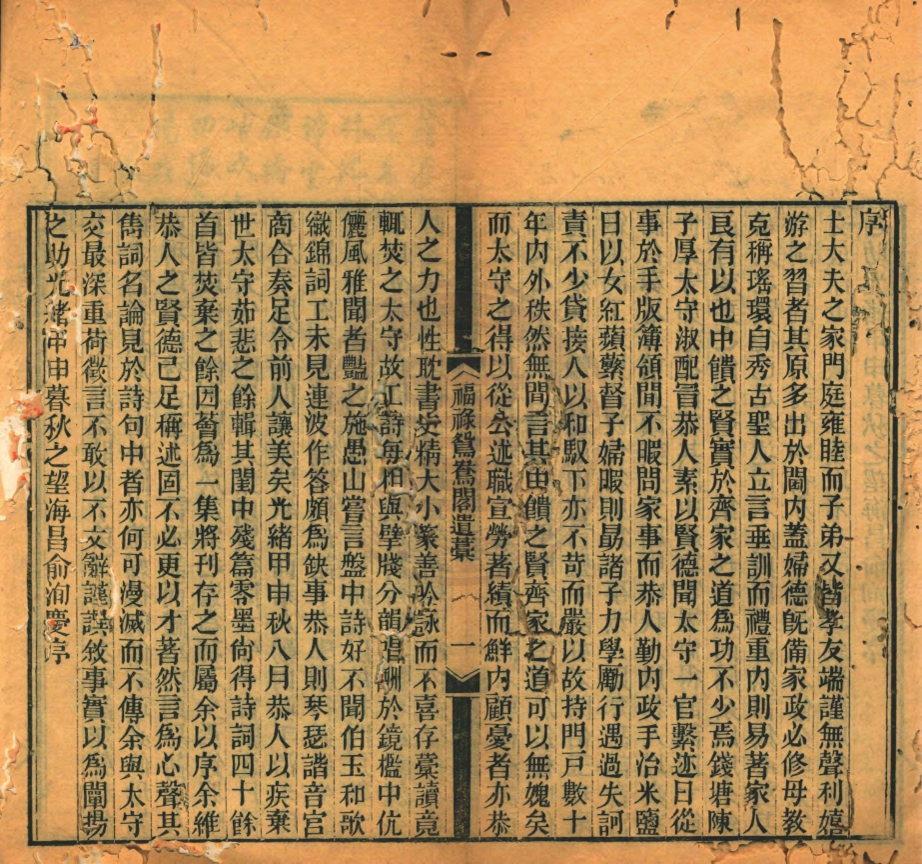 序
士大夫之家門庭雍睦而子弟又皆孝友端謹無聲利嬉
游之習者其原多出於閫內蓋婦德既備家政必修母教
克稱瑤環自秀古聖人立言垂訓而禮重內則易著家人
良有以也中饋之賢實於齊家之道為功不少焉錢塘陳
子厚太守淑配恭人素以賢德聞太守一官繫迹日從
事於手版簿領間不暇問家事而恭人勤內政手治米鹽
日以女紅蘋蘩督子婦暇則勗諸子力學勵行遇過失訶
責不少貸接人以和馭下亦不苛而嚴以故持門戶數十
年內外秩然無間言其中饋之賢齊家之道可以無媿矣
而太守之得以從公述職宣勞著績而鮮內顧憂者亦恭
福祿鴛鴦閣遺藁
一
人之力也性耽書史精大小篆善吟詠而不喜存藁讀竟
輒焚之太守故工詩每相與擘牋分韻唱酬於鏡檻中伉
儷風雅聞者豔之施愚山嘗言盤中詩好不聞伯玉和歌
織錦詞工未見連波作答頗為缺事恭人則琴瑟諧音宮
商合奏足令前人讓美矣光緒甲申秋八月恭人以疾棄
世太守茹悲之餘輯其閨中殘篇零墨尙得詩詞四十餘
首皆焚棄之餘因薈為一集將刊存之而屬余以序余維
恭人之賢德已足稱述固不必更以才著然言為心聲其
雋詞名論見於詩句中者亦何可漫滅而不傳余與太守
交最深重荷徵言不敢以不文辭謹譔敘事實以為闡揚
之助光緒甲申暮秋之望海昌俞洵慶序